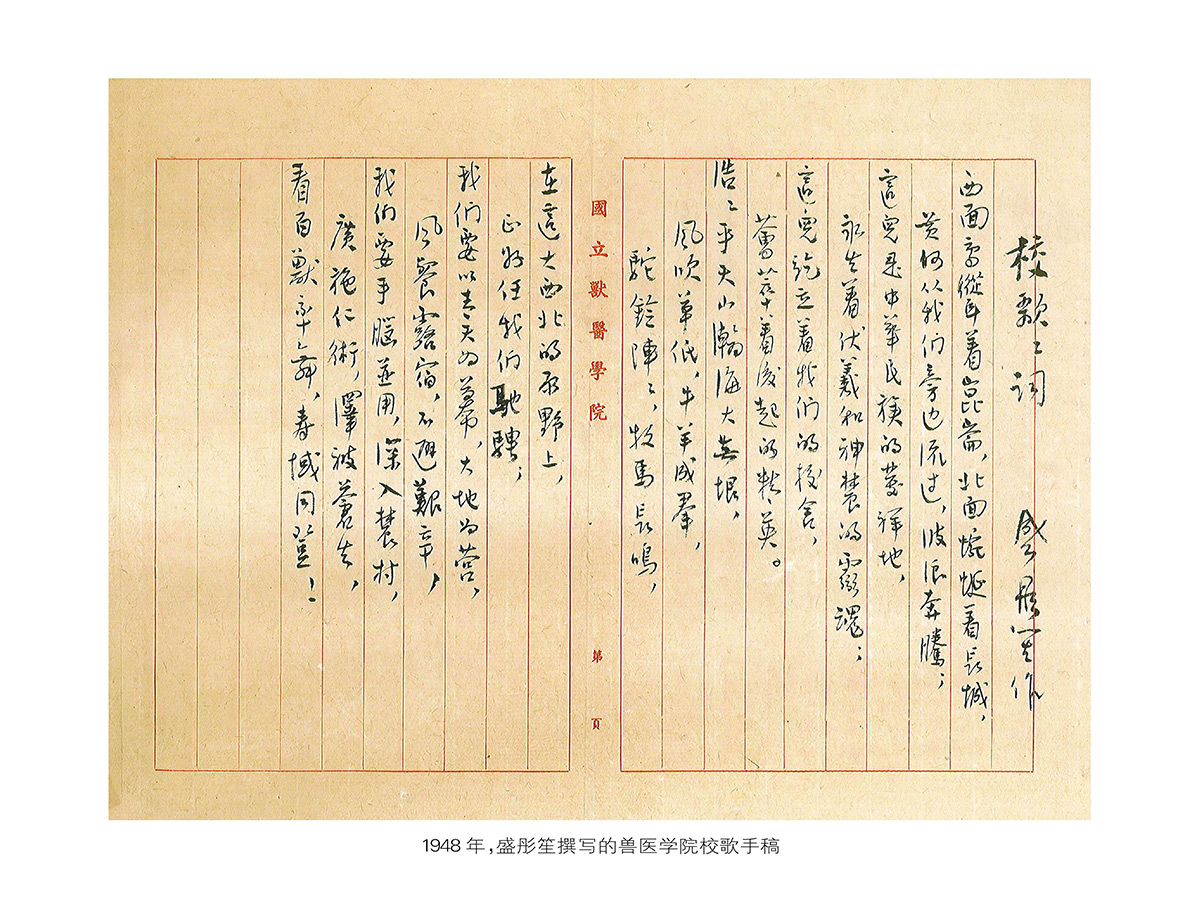 校歌〻詞
盛彤笙作
西面高聳着崑崙,北面蜿蜒着長城,
黄河从我们旁边流过,波浪奔騰;
這兒是中華民族的發祥地,
永生着伏羲和神農的靈魂;
這兒屹立着我们的校舍,
薈萃着後起的精英。
浩〻乎天山瀚海大無垠,
風吹草低,牛羊成羣,
駝鈴陣〻,牧馬長鳴,
國立獸醫學院
第 頁
在這大西北的原野上,
正好任我们馳騁;
我们要以青天为幕,大地为营,
風餐露宿,不避艱辛,
我们要手腦並用,深入農村,
廣施仁術,澤被蒼生,
看百獸率舞,壽域同登!
1948 年,盛彤笙撰写的兽医学院校歌手稿